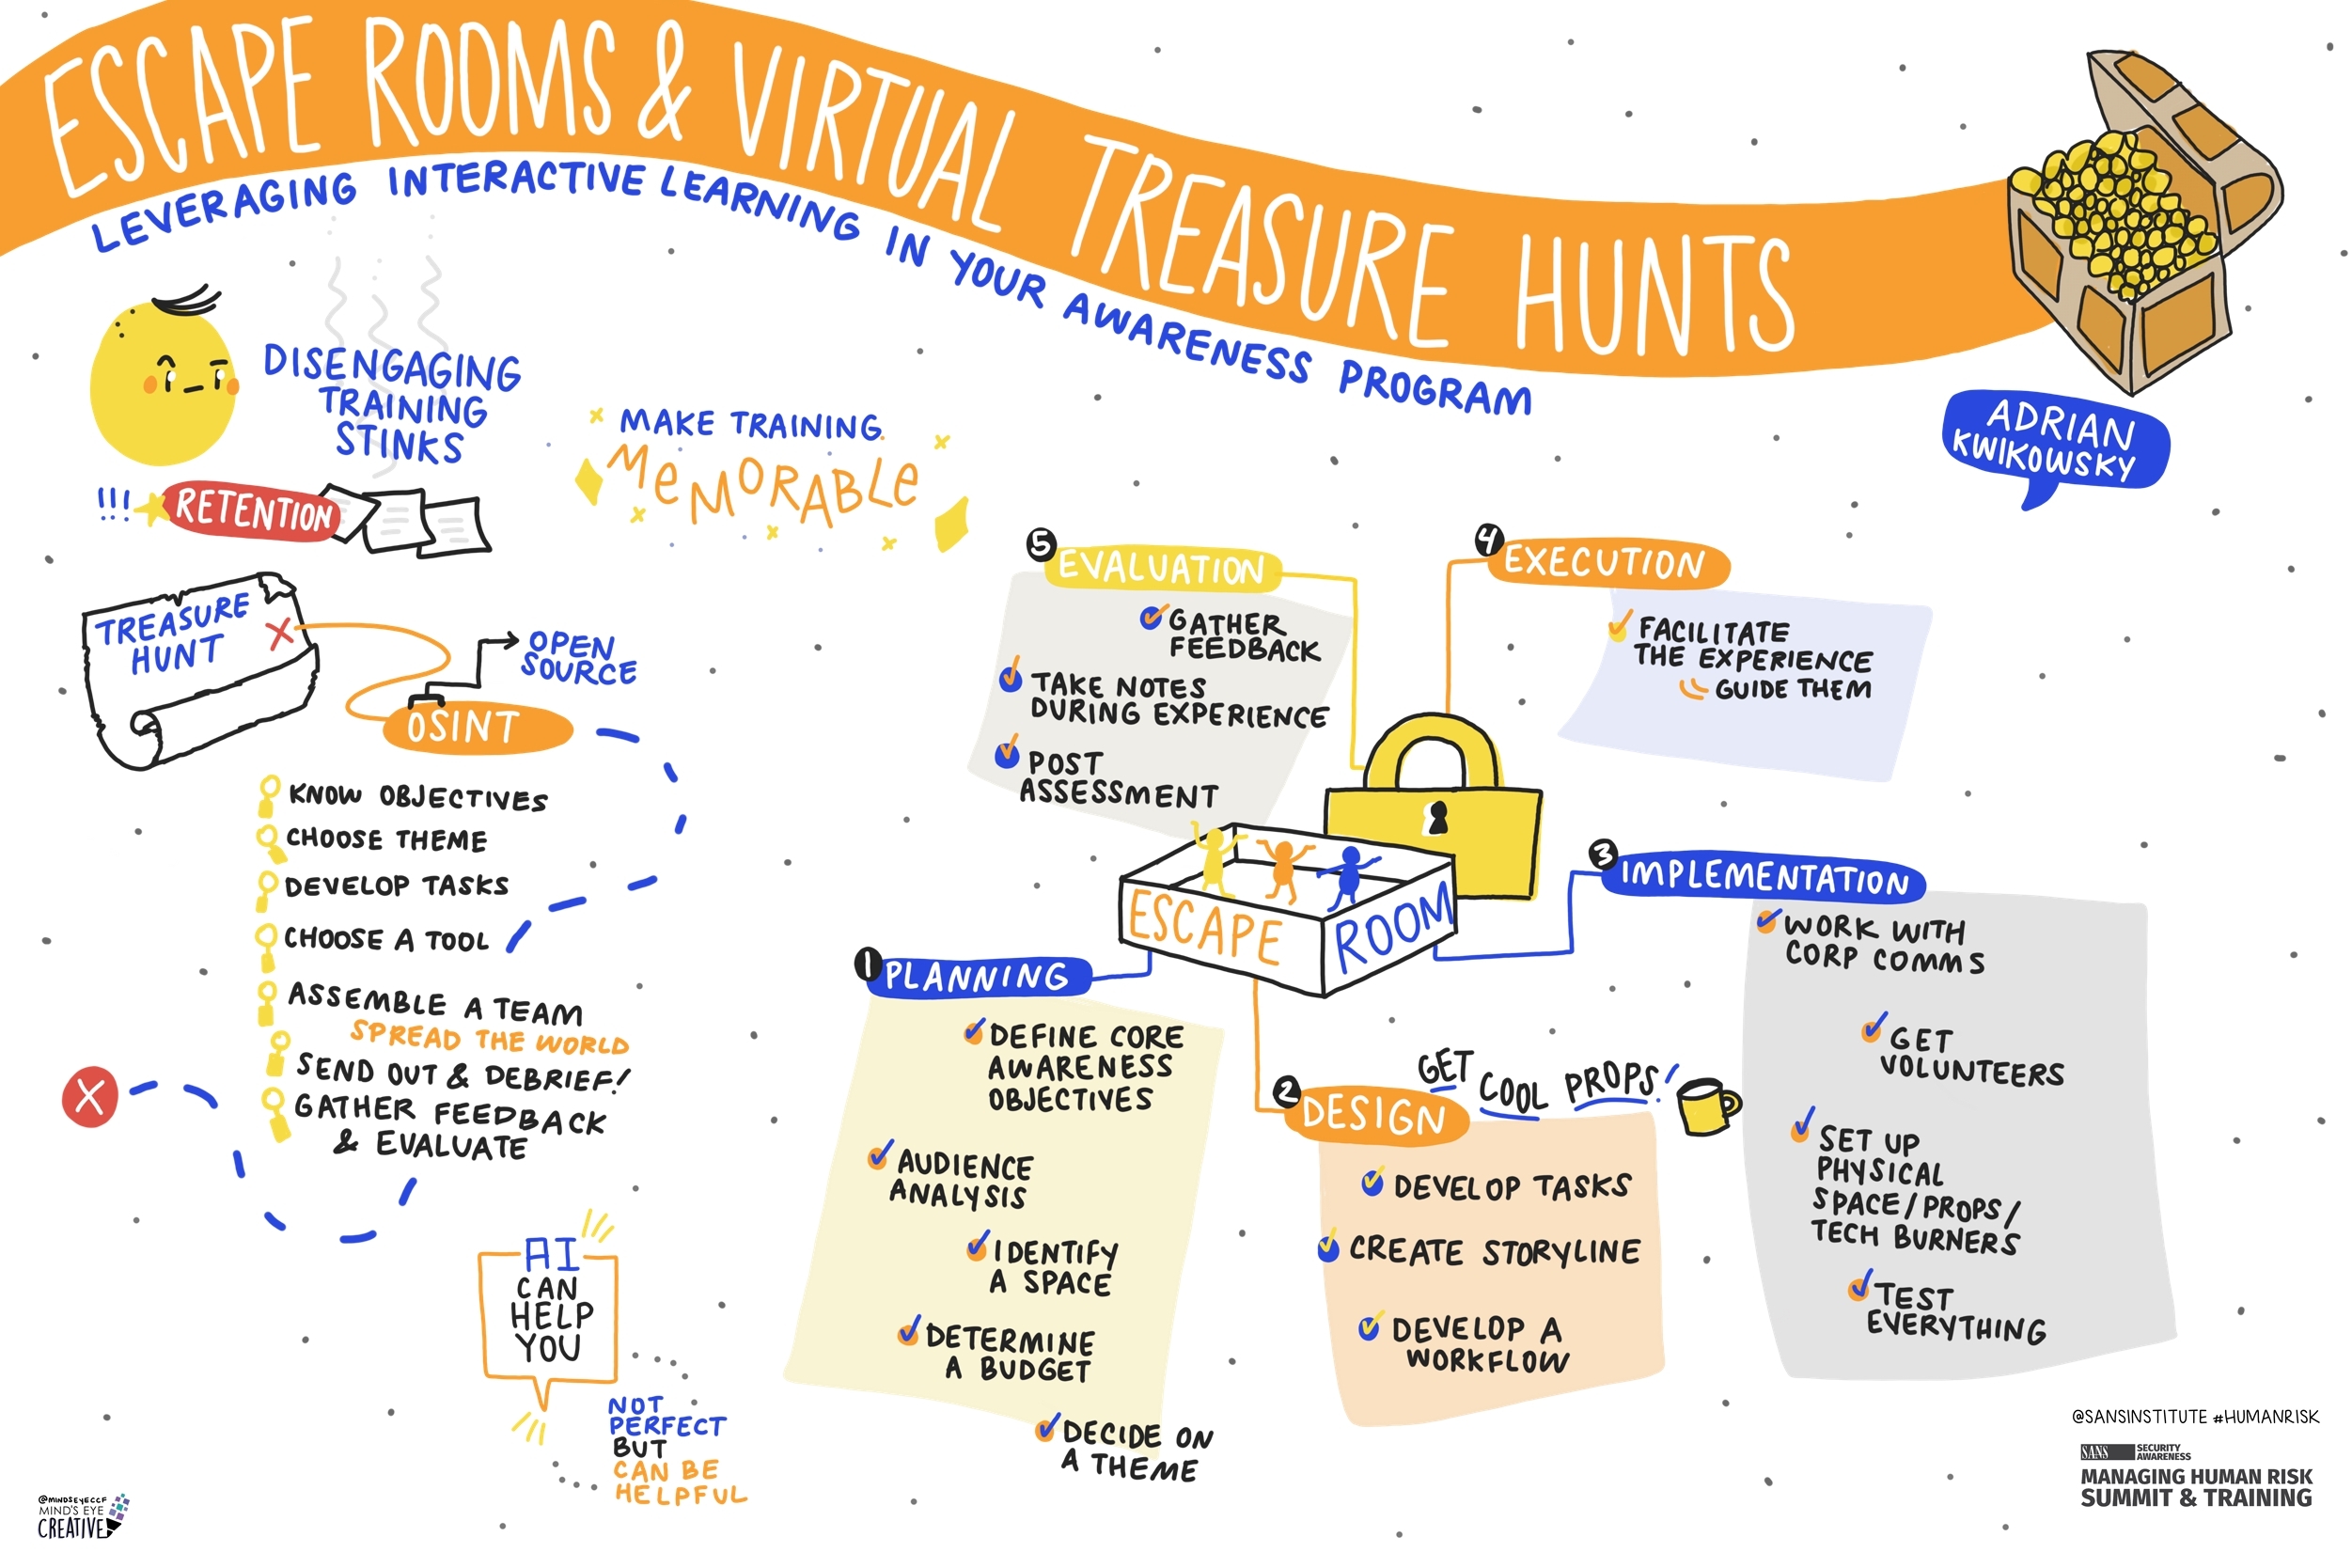 ESCAPE ROOMS & VIRTUAL TREASURE HUNTS
LEVERAGING INTERACTIVE LEARNING IN YOUR AWARENESS PROGRAM
ADRIAN
KWIKOWSKY
DISENGAGING
TRAINING
STINKS
!!! RETENTION
MAKE TRAINING
MEMORABLE
TREASURE
HUNT
X
OPEN
SOURCE
OSINT
KNOW OBJECTIVES
CHOOSE THEME
DEVELOP TASKS
CHOOSE A TOOL
ASSEMBLE A TEAM
SPREAD THE WORLD
SEND OUT & DEBRIEF!
GATHER FEEDBACK
& EVALUATE
X
AI
CAN
HELP
YOU
NOT
PERFECT
BUT
CAN BE
HELPFUL
ESCAPE ROOM
1 PLANNING
DEFINE CORE
AWARENESS
OBJECTIVES
AUDIENCE
ANALYSIS
IDENTIFY
A SPACE
DETERMINE
A BUDGET
DECIDE ON
A THEME
2 DESIGN
GET COOL PROPS!
DEVELOP TASKS
CREATE STORYLINE
DEVELOP A
WORKFLOW
3 IMPLEMENTATION
WORK WITH
CORP COMMS
GET
VOLUNTEERS
SET UP
PHYSICAL
SPACE/PROPS/
TECH BURNERS
TEST
EVERYTHING
4 EXECUTION
FACILITATE
THE EXPERIENCE
GUIDE THEM
5 EVALUATION
GATHER
FEEDBACK
TAKE NOTES
DURING EXPERIENCE
POST
ASSESSMENT
@SANSINSTITUTE #HUMANRISK
SANS SECURITY
AWARENESS
MANAGING HUMAN RISK
SUMMIT & TRAINING
@MINDSEYECCF
MIND'S EYE
CREATIVE